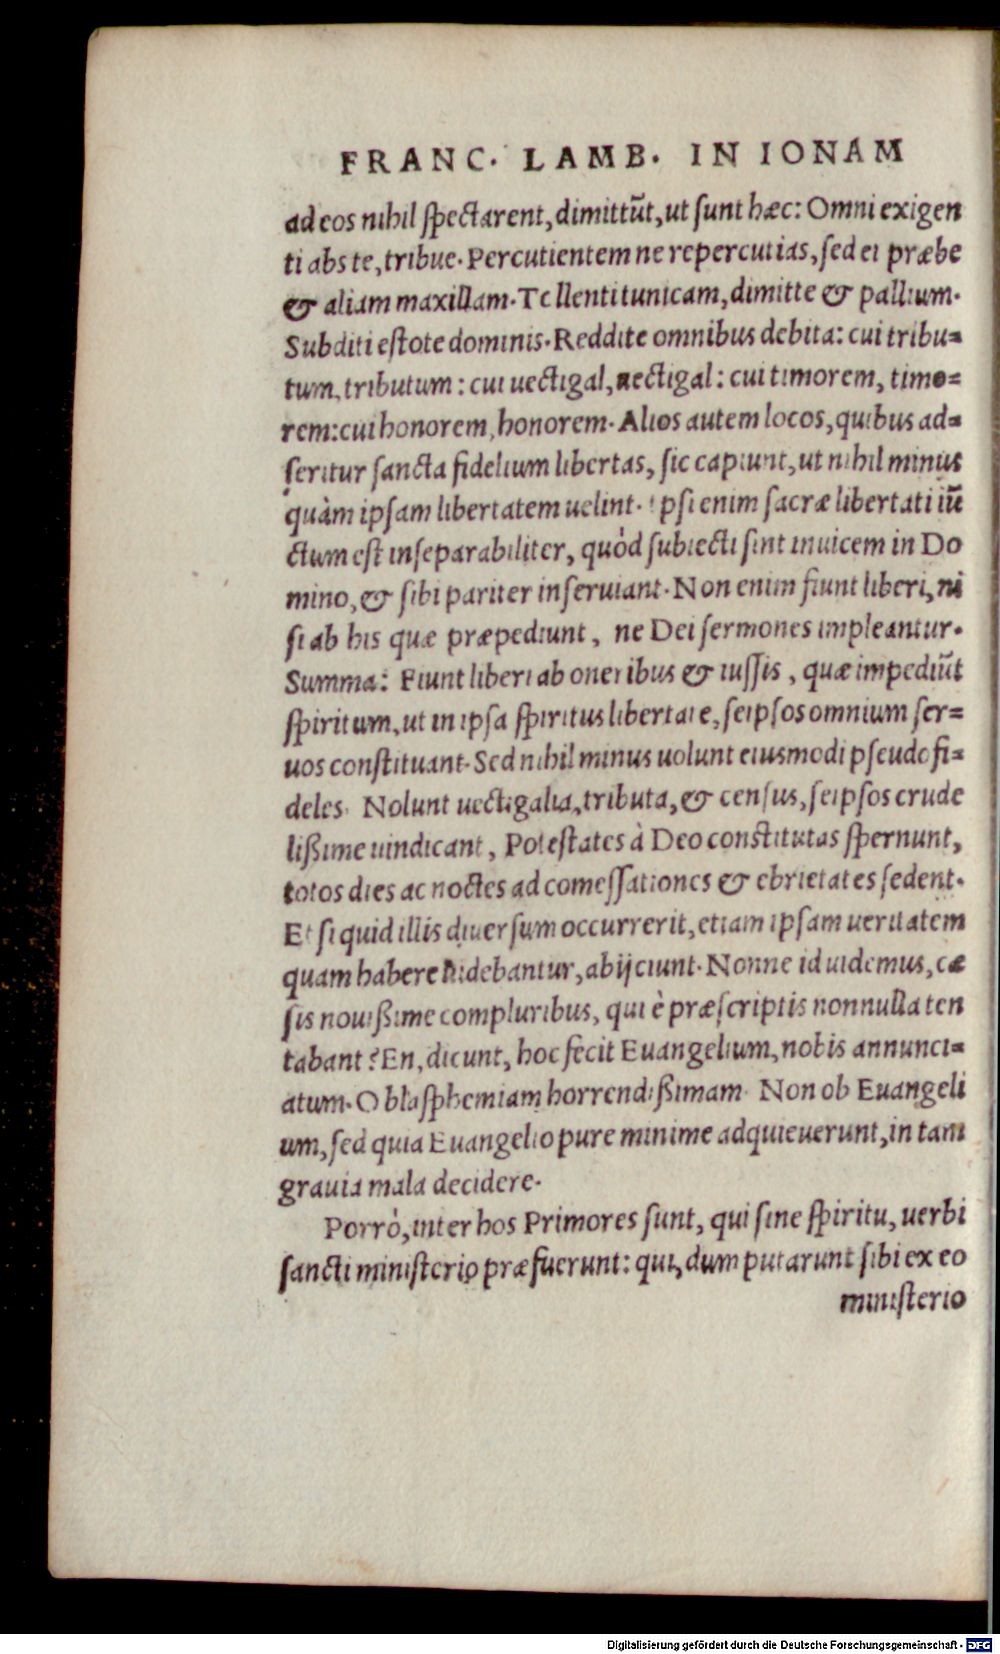 FRANC. LAMB. IN IONAM
ad eos nihil ſpectarent, dimittūt, ut ſunt hæc: Omni exigen
ti abs te, tribue. Percutientem ne repercutias, ſed ei præbe
& aliam maxillam. Tollenti tunicam, dimitte & pallium.
Subditi eſtote dominis. Reddite omnibus debita: cui tribu-
tum, tributum: cui uectigal, uectigal: cui timorem, timo-
rem: cui honorem, honorem. Alios autem locos, quibus ad-
ſeritur ſancta fidelium libertas, ſic capiunt, ut nihil minus
quàm ipſam libertatem uelint. Ipſi enim ſacræ libertati iū
ctum eſt inſeparabiliter, quòd ſubiecti ſint inuicem in Do
mino, & ſibi pariter inſeruiant. Non enim fiunt liberi, ni
ſi ab his quæ præpediunt, ne Dei ſermones impleantur.
Summa: Fiunt liberi ab oneribus & iuſſis, quæ impediūt
ſpiritum, ut in ipſa ſpiritus libertate, ſeipſos omnium ſer-
uos conſtituant. Sed nihil minus uolunt eiusmodi pſeudofi-
deles. Nolunt uectigalia, tributa, & cenſus, ſeipſos crude
lißime uindicant, Poteſtates à Deo conſtitutas ſpernunt,
totos dies ac noctes ad comeſſationes & ebrietates ſedent.
Et ſi quid illis diuerſum occurrerit, etiam ipſam ueritatem
quam habere uidebantur, abijciunt. Nonne id uidemus, cæ
ſis nouißime compluribus, qui è præſcriptis nonnulla ten
tabant? En, dicunt, hoc fecit Euangelium, nobis annunci-
atum. O blaſphemiam horrendißimam. Non ob Euangeli
um, ſed quia Euangelio pure minime adquieuerunt, in tam
grauia mala decidere.
Porrò, inter hos Primores ſunt, qui ſine ſpiritu, uerbi
ſancti miniſterio præfuerunt: qui, dum putarunt ſibi ex eo
miniſterio
Digitalisierung gefördert durch die Deutsche Forschungsgemeinschaft - DFG